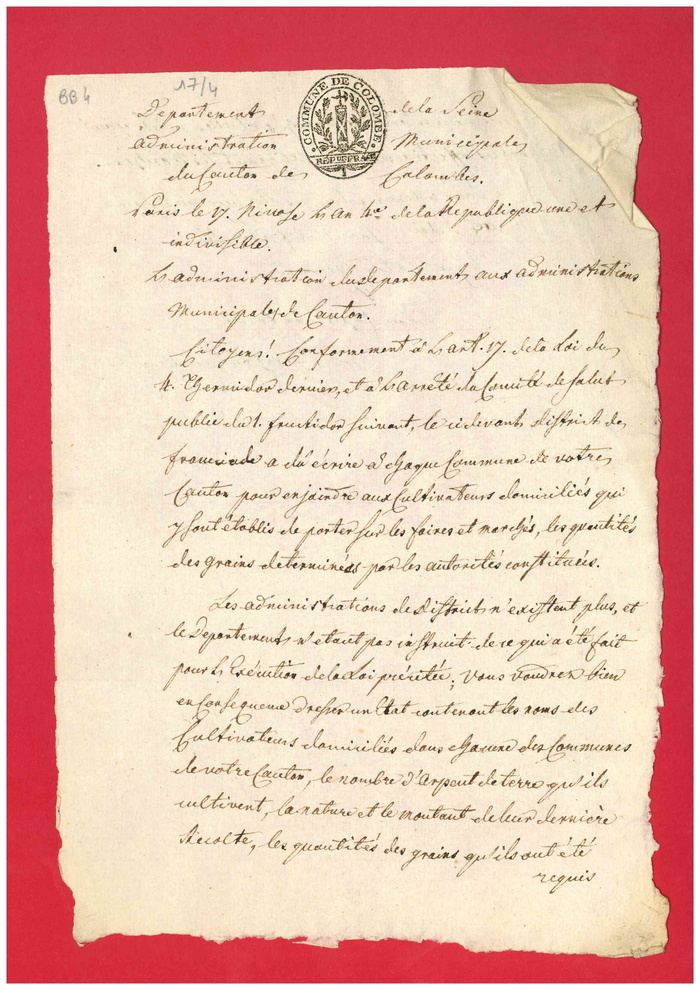 BB 4
17/4
COMMUNE DE COLOMBE
REP. FRAC
Departement de la Seine
administration Municipale
du Canton de Colombes.
Paris le 17. Nivose L'an 4e. de la Republique une et
indivisible.
L'administration du departement aux administrations
Municipales de Canton.
Citoyens! Conformement à L'art. 17. de la Loi du
4. Thermidor dernier, et à L'arrêté du Comité de Salut
public du 1. fructidor Suivant, le cidevant district de
franciade a dû écrire à chaque Commune de votre
Canton pour enjoindre aux Cultivateurs domiciliés qui
y sont établis de porter sur les foires et marchés, les quantités
des grains determinées par les autorités constituées.
Les administrations de district n'existent plus, et
le Departement n'etant pas instruit de ce qui a été fait
pour L'Exécution de la Loi précitée; vous voudrez bien
en Consequence dresser un Etat contenant les noms des
Cultivateurs domiciliés dans chacune des Communes
de votre Canton, le nombre d'Arpent de terre qu'ils
cultivent, la nature et le montant de leur dernière
Récolte, les quantités des grains qu'ils ont été
requis